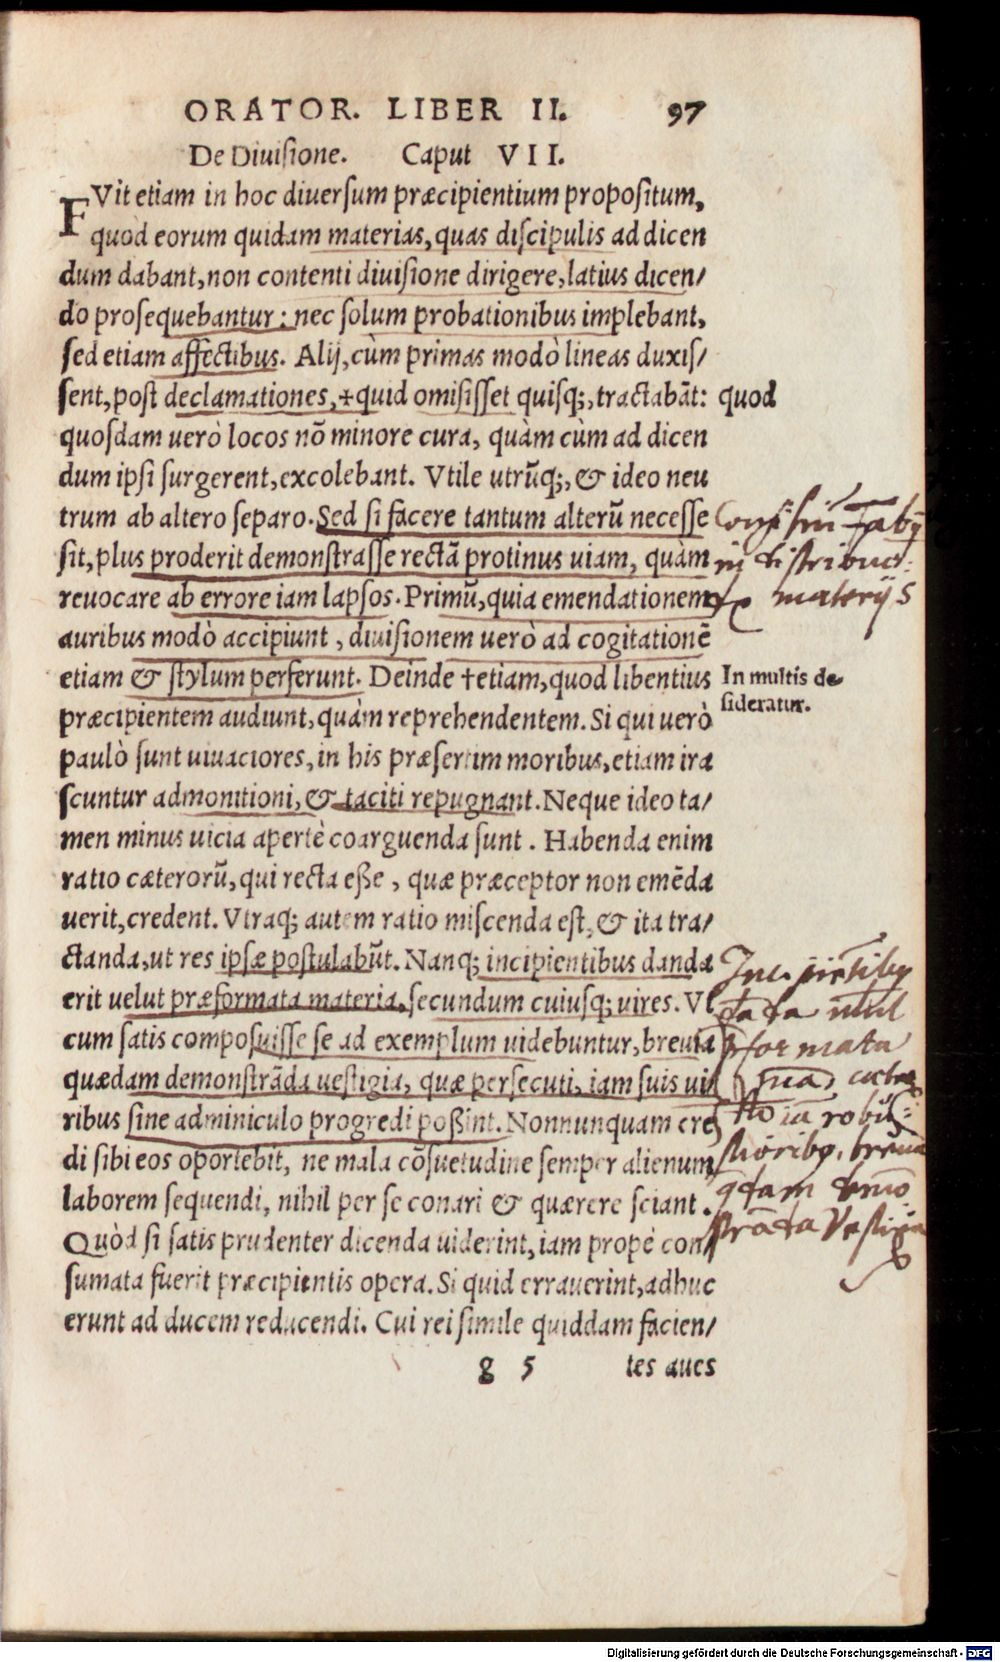 ORATOR. LIBER II. 97
De Diuisione. Caput VII.
FVit etiam in hoc diuersum præcipientium propositum,
quòd eorum quidam materias, quas discipulis ad dicen
dum dabant, non contenti diuisione dirigere, latius dicen/
do prosequebantur: nec solum probationibus implebant,
sed etiam affectibus. Alij, cùm primas modò lineas duxis/
sent, post declamationes, +quid omisisset quisq;, tractabāt: quod
quosdam uerò locos nō minore cura, quàm cùm ad dicen
dum ipsi surgerent, excolebant. Vtile utrūq;, & ideo neu
trum ab altero separo. Sed si facere tantum alterū necesse
sit, plus proderit demonstrasse rectā protinus uiam, quàm
reuocare ab errore iam lapsos. Primū, quia emendationem
auribus modò accipiunt, diuisionem uerò ad cogitationē
etiam & stylum perferunt. Deinde †etiam, quod libentius
In multis de
sideratur.
præcipientem audiunt, quàm reprehendentem. Si qui uerò
paulò sunt uiuaciores, in his præsertim moribus, etiam ira
scuntur admonitioni, & taciti repugnant. Neque ideo ta/
men minus uicia apertè coarguenda sunt. Habenda enim
ratio cæterorū, qui recta eße, quæ præceptor non emēda
uerit, credent. Vtraq; autem ratio miscenda est, & ita tra/
ctanda, ut res ipsæ postulabūt. Nanq; incipientibus danda
erit uelut præformata materia, secundum cuiusq; uires. Vt
cum satis composuisse se ad exemplum uidebuntur, breuia
quædam demonstrāda uestigia, quæ persecuti, iam suis ui/
ribus sine adminiculo progredi poßint. Nonnunquam cre
di sibi eos oportebit, ne mala cōsuetudine semper alienum
laborem sequendi, nihil per se conari & quærere sciant.
Quòd si satis prudenter dicenda uiderint, iam propè con/
sumata fuerit præcipientis opera. Si quid errauerint, adhuc
erunt ad ducem reducendi. Cui rei simile quiddam facien/
g 5 tes aues
materijs
formata
Vestigia
Digitalisierung gefördert durch die Deutsche Forschungsgemeinschaft - DFG